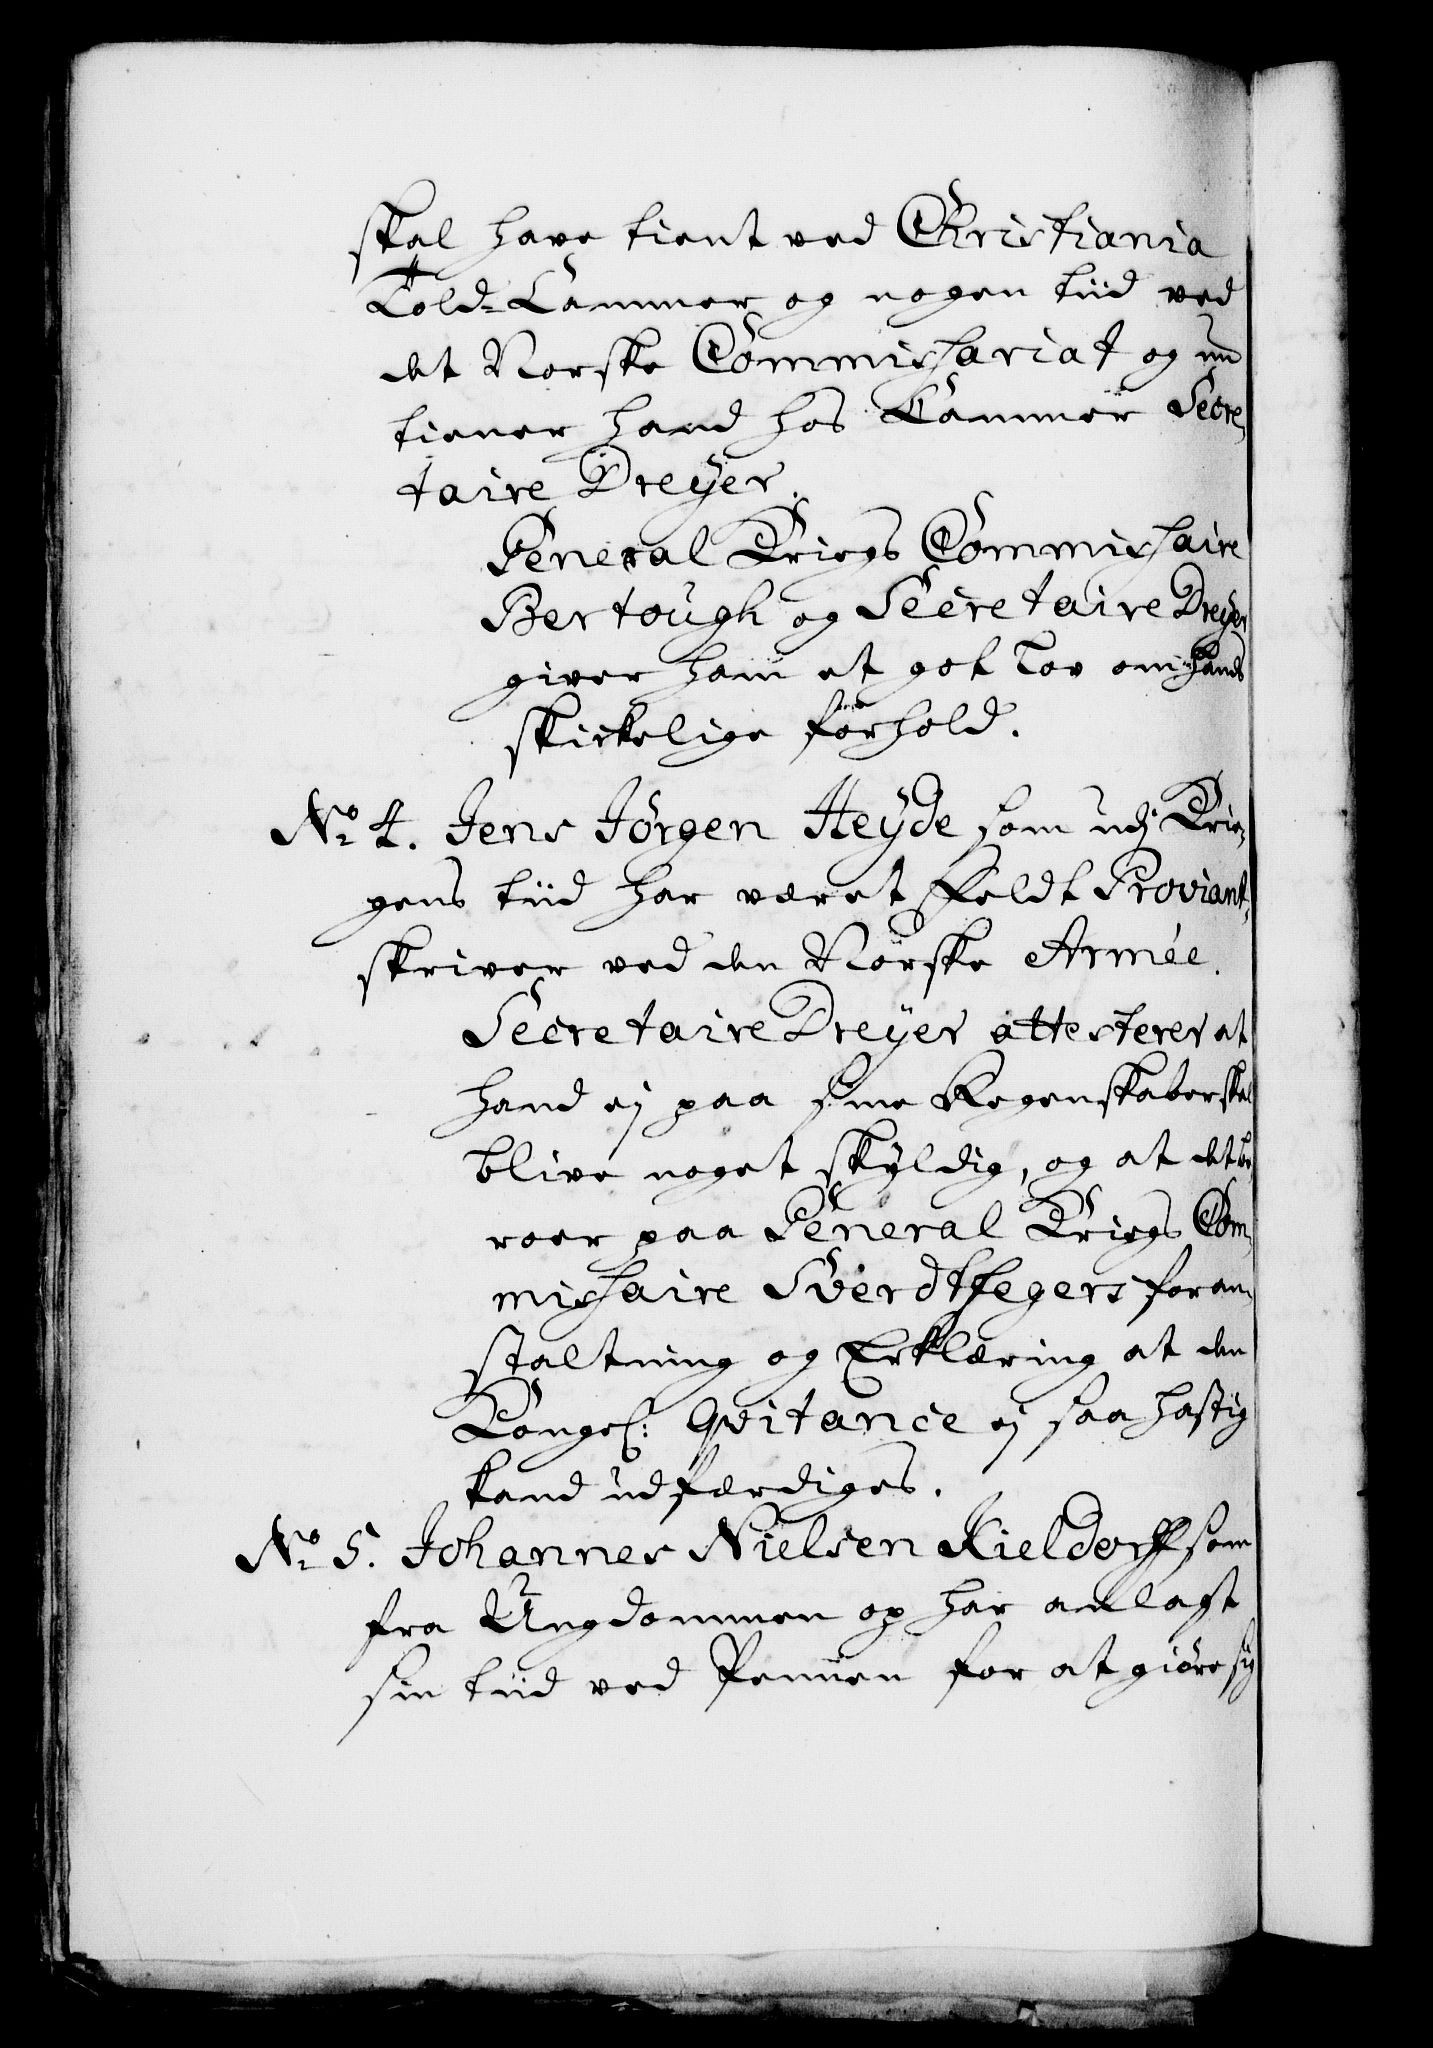 skal have tient ved Christiania
Told-Cammer og nogen tiid ved
det Norske Commissariat og nu
tiener hand hos Cammer Secre-
taire Dreÿer.
General Krigs Commissaire
Bertough og Secretaire Dreÿer
giver ham et got Lov om hands
skickelige forhold.
No 4. Jens Jörgen Heÿde som udj Krie-
gens tiid har været Feldt Proviant-
skriver ved den Norske Armée.
Secretaire Dreÿer attesterer at
hand ej paa sine Regenskaber skal
blive noget skyldig, og at det be-
roer paa General Krigs Com-
missaire Sverdtfegers foran-
staltning og Erklæring at den
Kongel: Qvitance ej saa hastig
kand udfærdiges.
No 5. Johannes Nielsen Kieldorff som
fra Ungdommen op har anlagt
sin tiid ved Pennen for at giöre sig